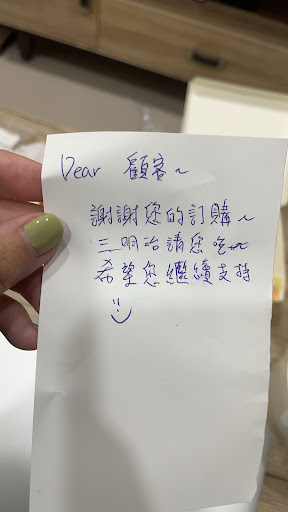 Dear 顧客~
謝謝您的訂購~
三明治請您吃~
希望您繼續支持